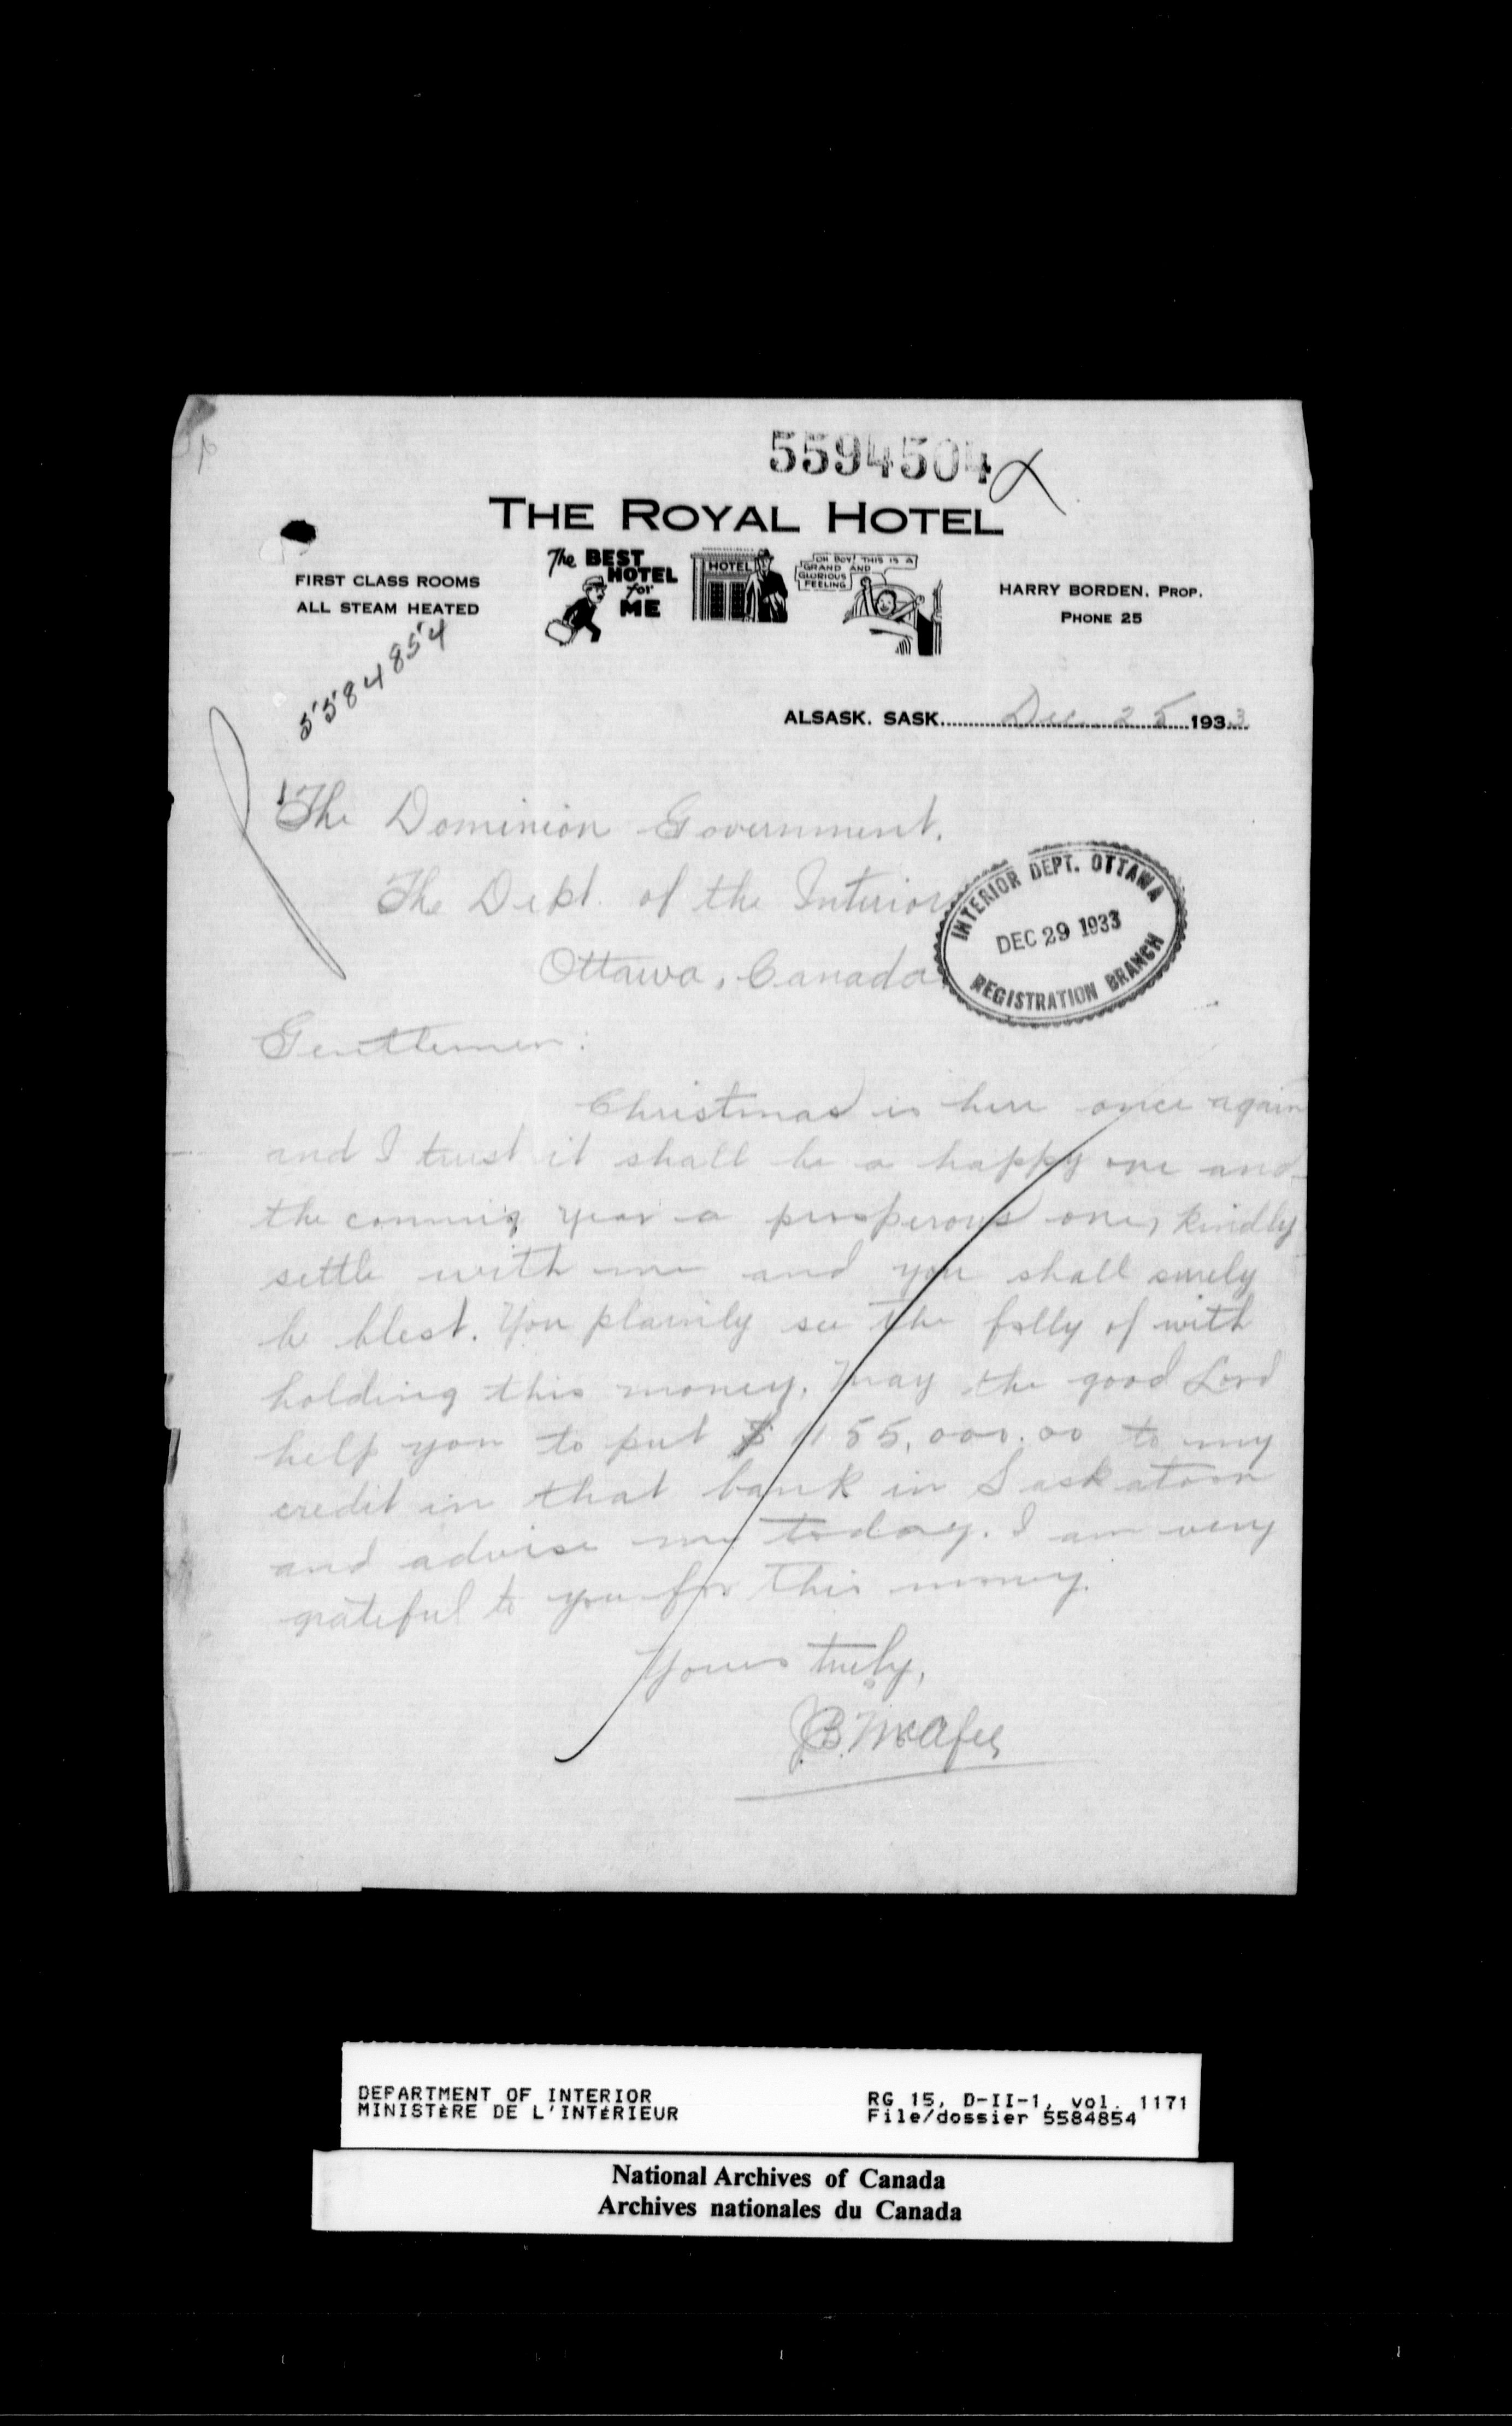 5594504
THE ROYAL HOTEL
The BEST HOTEL for ME
HOTEL
OH BOY! THIS IS A GRAND AND GLORIOUS FEELING
FIRST CLASS ROOMS
ALL STEAM HEATED
HARRY BORDEN, PROP.
PHONE 25
5584854
ALSASK, SASK. Dec. 25 1933
The Dominion Government.
The Dept. of the Interior
Ottawa, Canada
INTERIOR DEPT. OTTAWA
DEC 29 1933
REGISTRATION BRANCH
Gentlemen:
Christmas is here once again
and I trust it shall be a happy one and
the comming year a prosperous one, kindly
settle with me and you shall surely
be blest. You plainly see the folly of with
holding this money. May the good Lord
help you to put $ 155,000.00 to my
credit in that bank in Saskatoon
and advise me today. I am very
grateful to you for this money.
Yours truly,
J.B. McAfee
DEPARTMENT OF INTERIOR
MINISTÈRE DE L'INTÉRIEUR
RG 15, D-II-1, vol. 1171
File/dossier 5584854
National Archives of Canada
Archives nationales du Canada